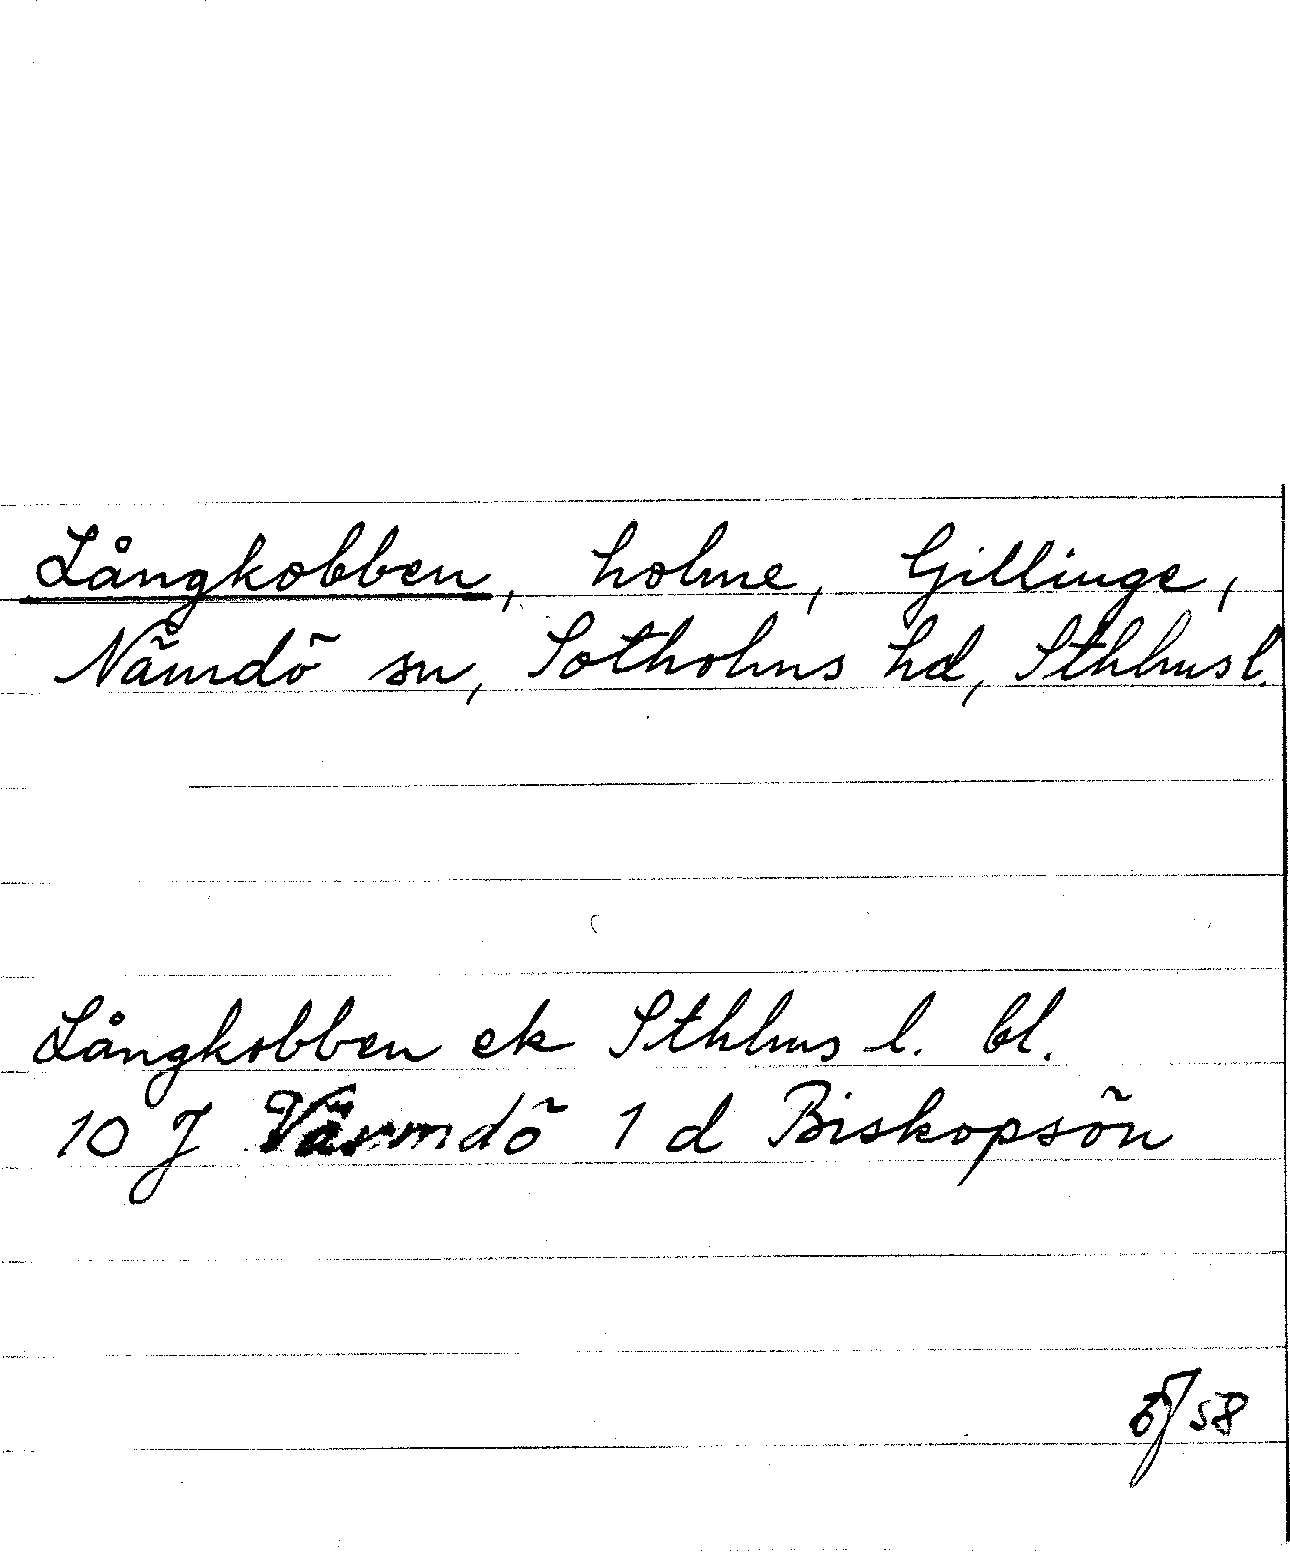 Långkobben, holme, Gillinge,
Nämdö sn, Sotholms hd, Sthlms l.
Långkobben ek Sthlms l. bl.
10 J Värmdö 1 d Biskopsön
58